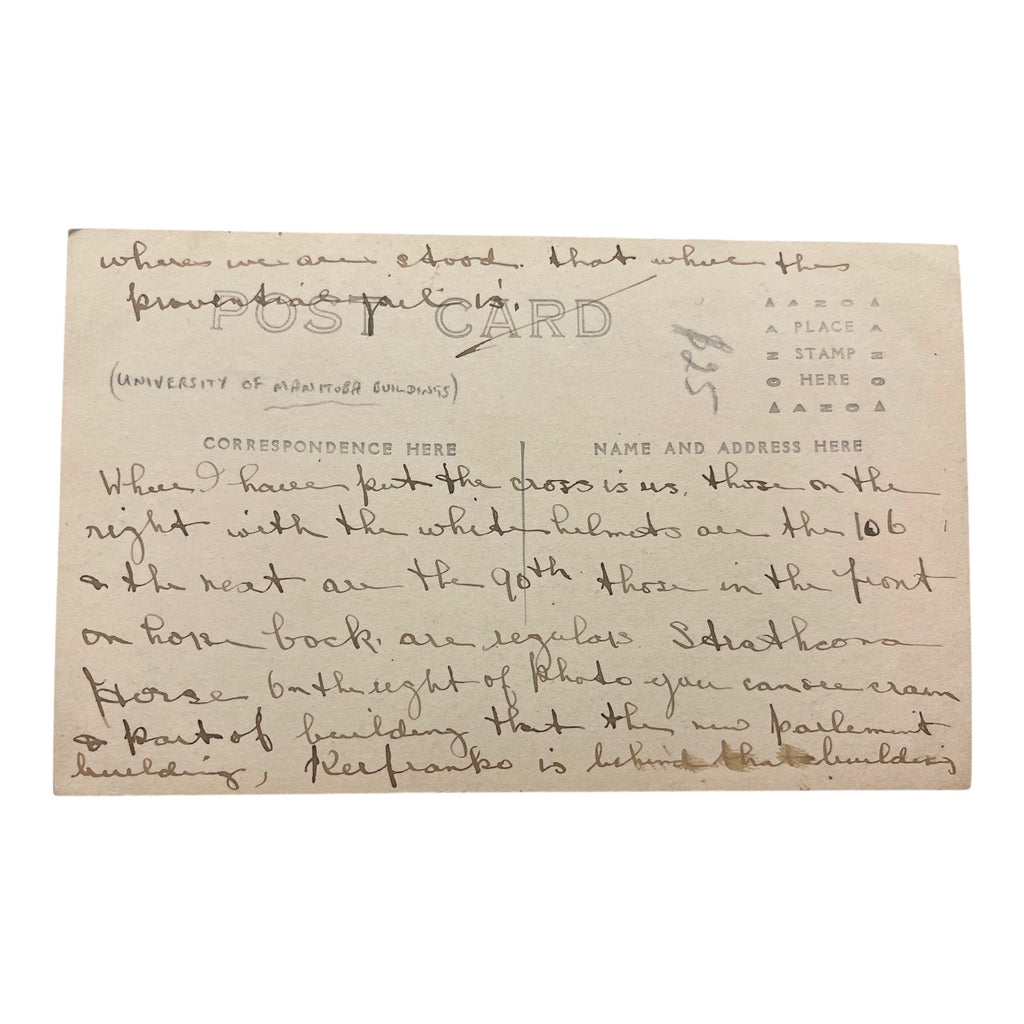 where we are stood. that where the
provential jail is.
POST CARD
(UNIVERSITY OF MANITOBA BUILDINGS)
AZO
PLACE
STAMP
HERE
AZO
CORRESPONDENCE HERE
NAME AND ADDRESS HERE
Where I have put the cross is us, those on the
right with the white helmets are the 106
& the next are the 90th those in the front
on horse back. are regulars Strathcona
Horse On the right of photo you can see crain
& part of building that the new parlement
building, is behind that building